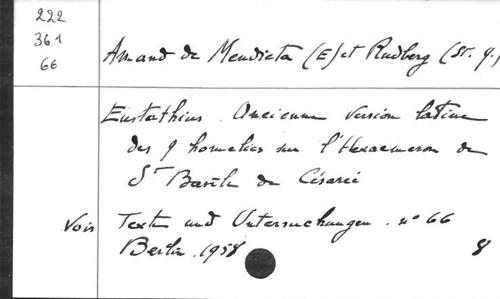 222
361
66
Amand de Mendieta (E) et Rudberg (St. Y.)
Eustathius. Ancienne version latine
des 9 homelies sur l'Hexaemeron de
St Basile de Césarée
Vois Texte und Untersuchungen. no 66
Berlin. 1958 8